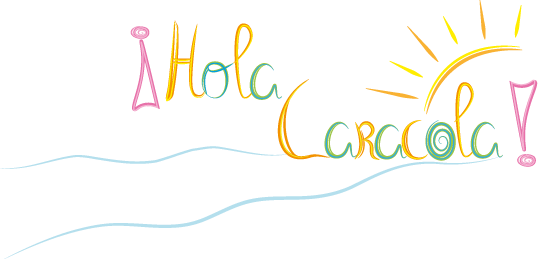 ¡Hola
Caracola!